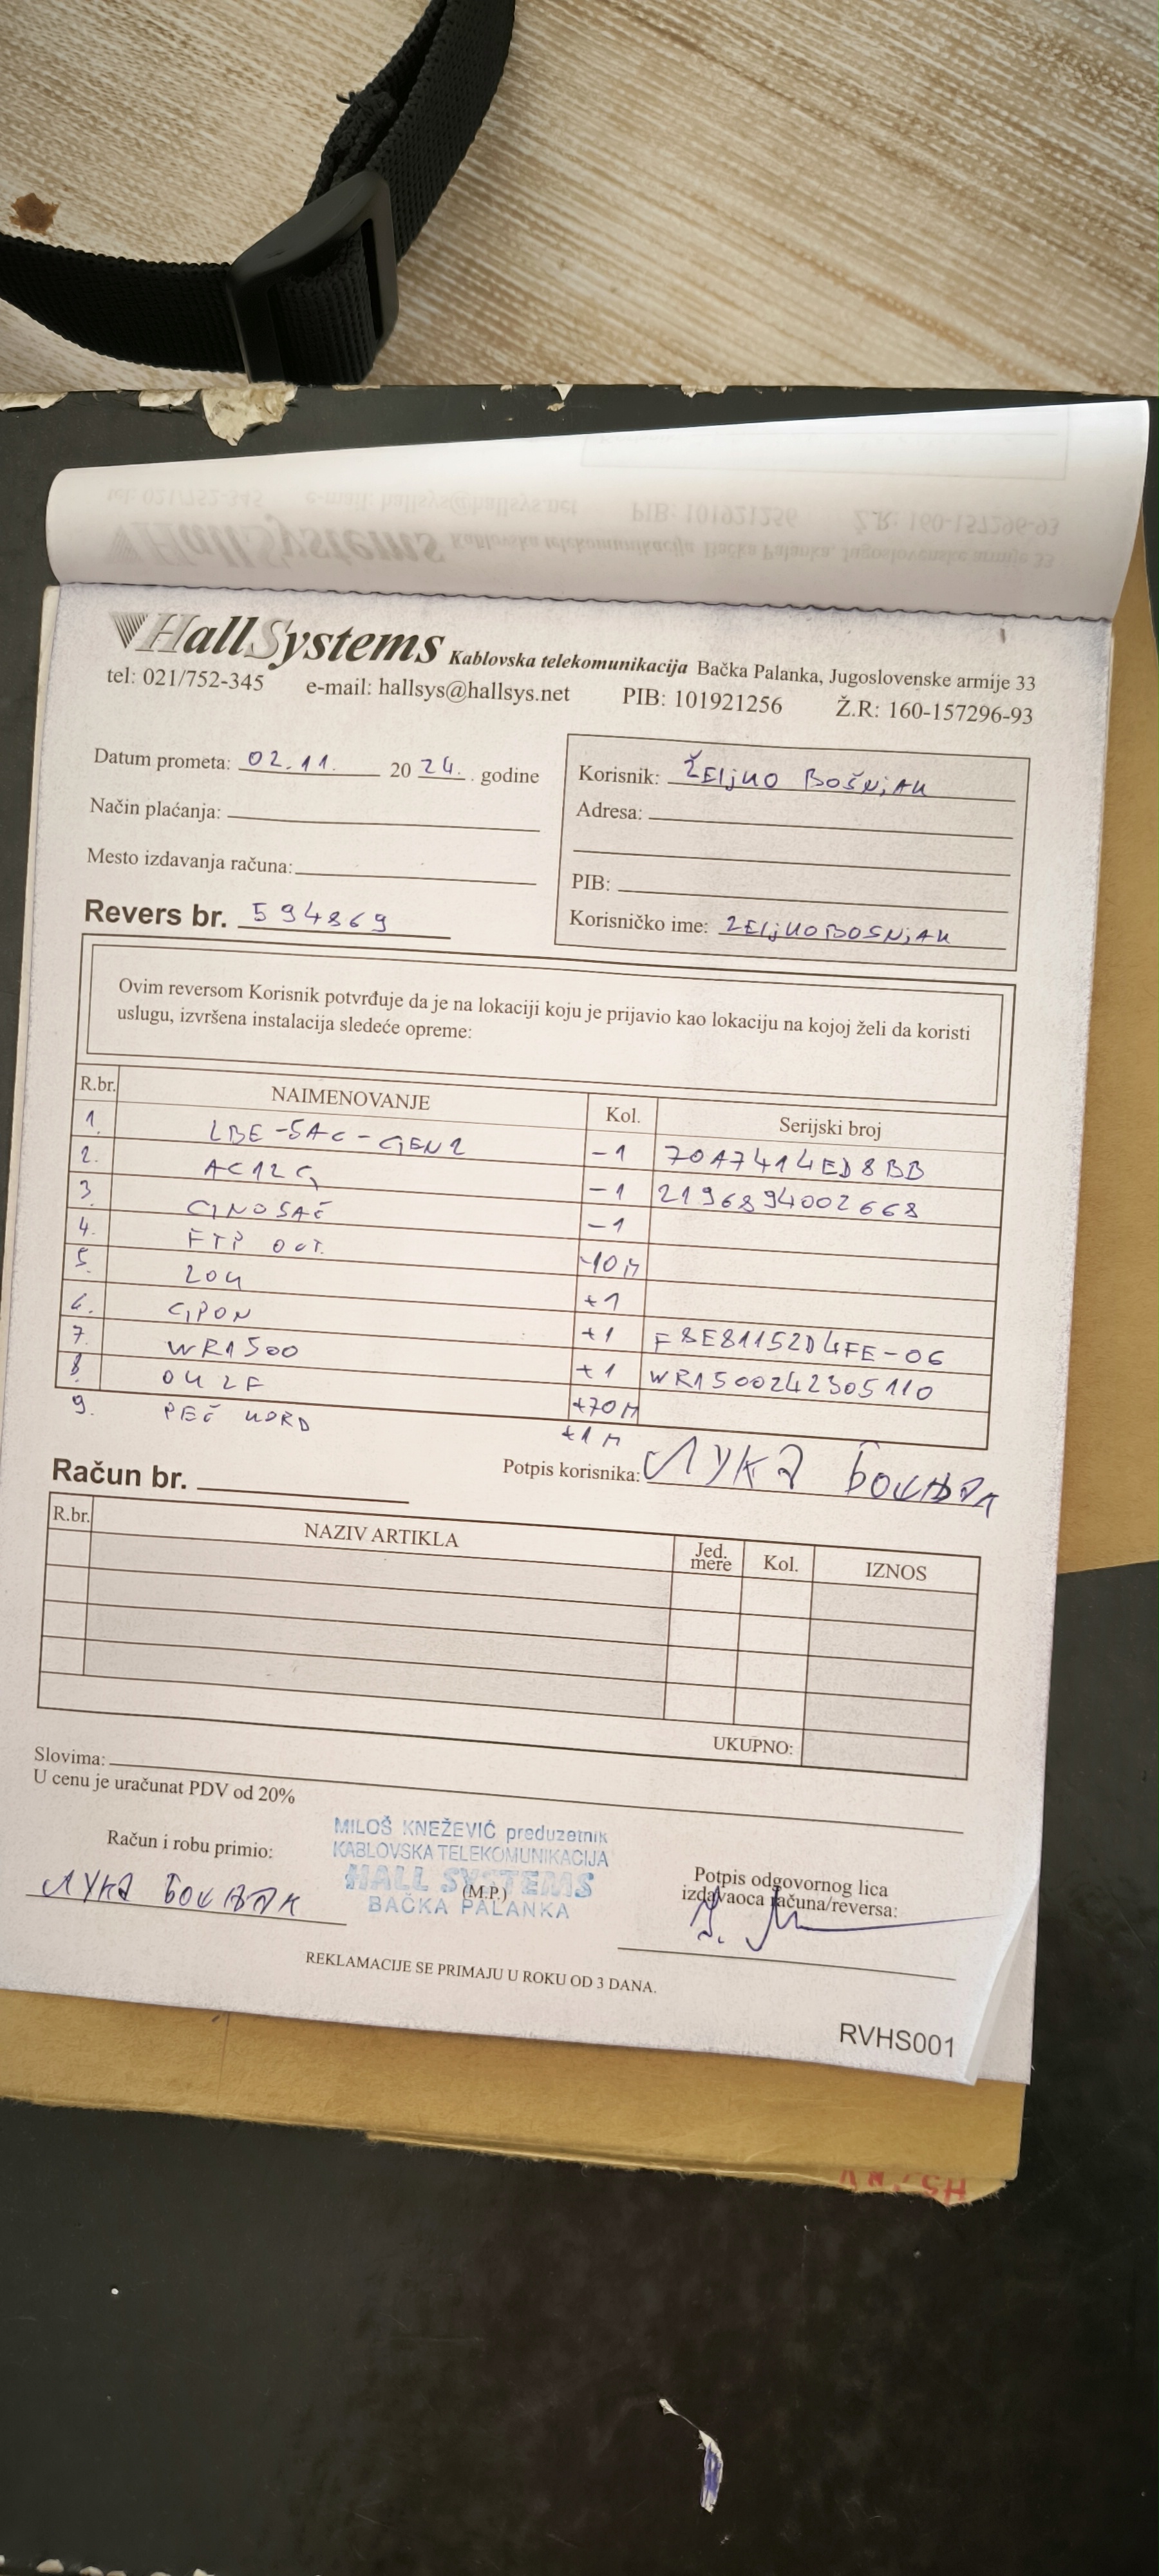 HallSystems Kablovska telekomunikacija Bačka Palanka, Jugoslovenske armije 33
tel: 021/752-345 e-mail: hallsys@hallsys.net PIB: 101921256 Ž.R: 160-157296-93
Datum prometa: 02.11. 20 24. godine
Način plaćanja:
Mesto izdavanja računa:
Revers br. 594869
Korisnik: ŽELjKO BOŠNjAK
Adresa:
PIB:
Korisničko ime: ZELjKOBOSNjAK
Ovim reversom Korisnik potvrđuje da je na lokaciji koju je prijavio kao lokaciju na kojoj želi da koristi
uslugu, izvršena instalacija sledeće opreme:
R.br. NAIMENOVANJE Kol. Serijski broj
1. LBE-5AC-GEN2 -1 70A7414ED8BB
2. AC12G -1 2196894002668
3 GNOSAČ -1
4. FTP OUT. -10M
5. ZOK +1
6. GPON +1 F8E81152D4FE-06
7. WR1500 +1 WR1500242305110
8 OK 2F +70M
9. PEČ KORD +1M
Potpis korisnika: ЛУКА БОШЊАК
Račun br.
R.br. NAZIV ARTIKLA Jed. mere Kol. IZNOS
UKUPNO:
Slovima:
U cenu je uračunat PDV od 20%
Račun i robu primio:
ЛУКА БОШЊАК
MILOŠ KNEŽEVIĆ preduzetnik
KABLOVSKA TELEKOMUNIKACIJA
HALL SYSTEMS
(M.P.)
BAČKA PALANKA
Potpis odgovornog lica
izdavaoca računa/reversa:
REKLAMACIJE SE PRIMAJU U ROKU OD 3 DANA.
RVHS001